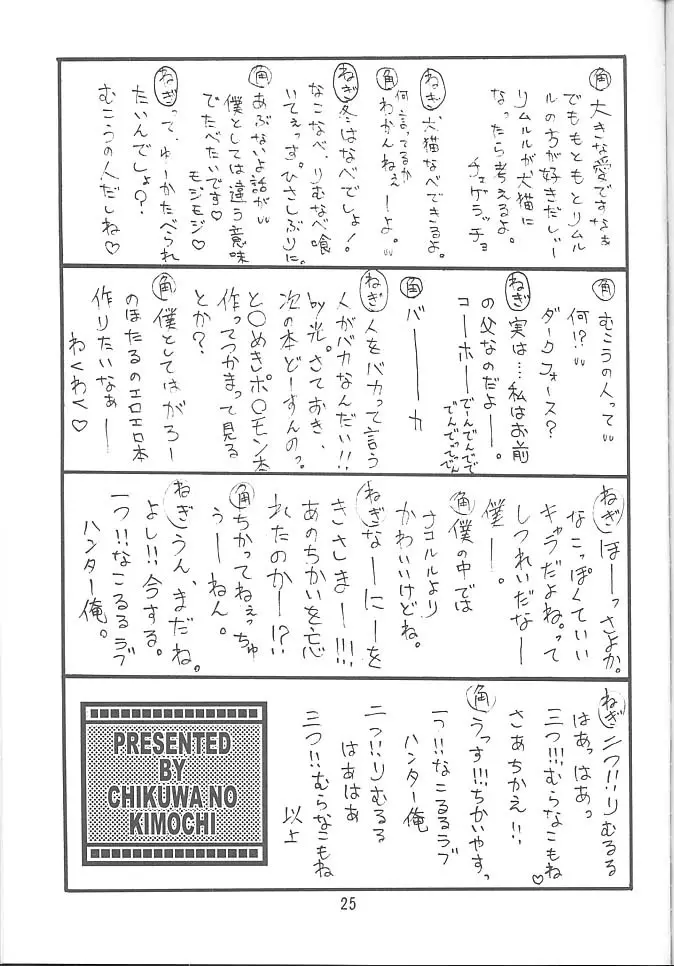 角 大きな愛ですなぁ
でももともとリムル
ルの方が好きだしぃー
リムルルが犬猫に
なったら考えるよ。
チェゲラッチョ
ねぎ 犬猫なべできるよ。
角 何言ってるか
わかんねぇーよ。〃
ねぎ 冬はなべでしょ!
なこなべ、りむなべ喰
いてぇっす。ひさしぶりに。
角 あぶないよ話が〃
僕としては違う意味
でたべたいです♡
モジモジ♡
ねぎ って、ゆーかたべられ
たいんでしょ?
むこうの人だしね♡
角 むこうの人って〃
何!?〃
ダークフォース?
ねぎ 実は…私はお前
の父なのだよー。
コーホー でーんでんでんで
でんでっでっでん
角 バーーーカ
ねぎ 人をバカって言う
人がバカなんだい!!
by光。さておき、
次の本どーすんの?
と〇めきポ〇モン本
作ってつかまって見る
とか?
角 僕としてはがろー
のほたるのエロエロ本
作りたいなぁーー
わくわく♡
ねぎ ほーっさよか。
なこっぽくていい
キャラだよね。って
しつれいだなー
僕ー。
角 僕の中では
ナコルルより
かわいいけどね。
ねぎ なーにーを
きさしまー!!!
あのちかいを忘
れたのかー!?
角 ちかってねぇっちゅ
うーねん。
ねぎ うん、まだね。
よし!!今する。
一つ!!なこるるラブ
ハンター俺。
ねぎ 二つ!!りむるる
はあっはあっ
三つ!!!むらなこもね♡
さあちかえ!!
角 うっす!!!ちかいやすっ
一っ!!なこるるラブ
ハンター俺
二っ!!りむるる
はあはあ
三つ!!むらなこもね
以上
PRESENTED
BY
CHIKUWA NO
KIMOCHI
25